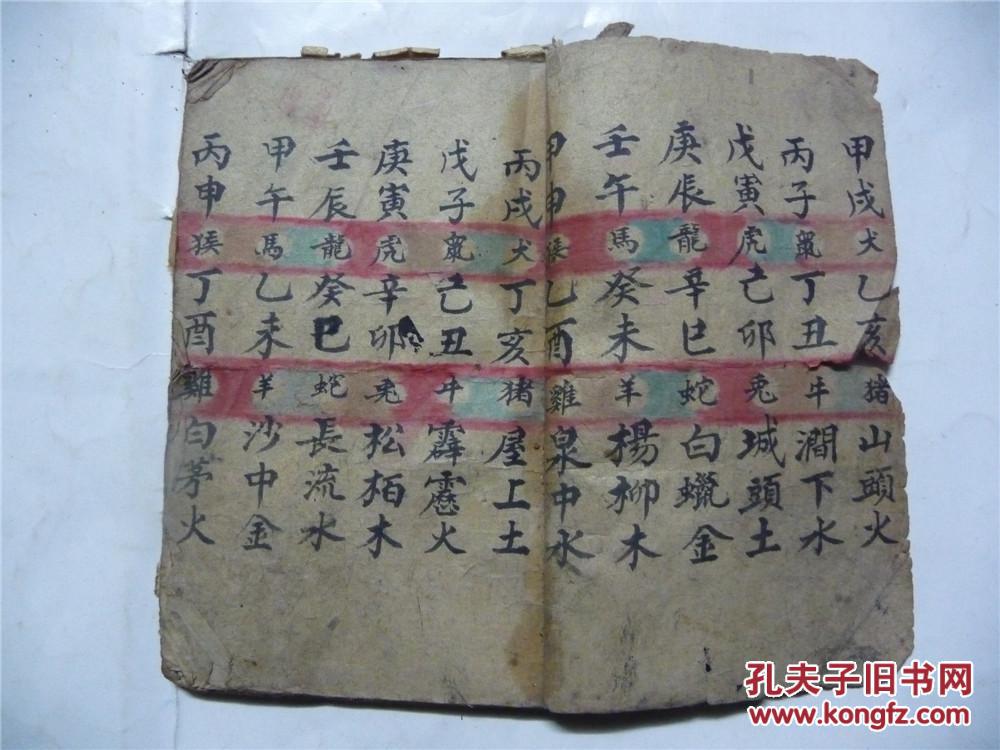 甲戌犬乙亥猪山頭火
丙子鼠丁丑牛澗下水
戊寅虎己卯兎城頭土
庚辰龍辛巳蛇白蠟金
壬午馬癸未羊楊柳木
甲申猴乙酉雞泉中水
丙戌犬丁亥猪屋上土
戊子鼠己丑牛霹靂火
庚寅虎辛卯兎松栢木
壬辰龍癸巳蛇長流水
甲午馬乙未羊沙中金
丙申猴丁酉雞白茅火
孔夫子旧书网
www.kongfz.com